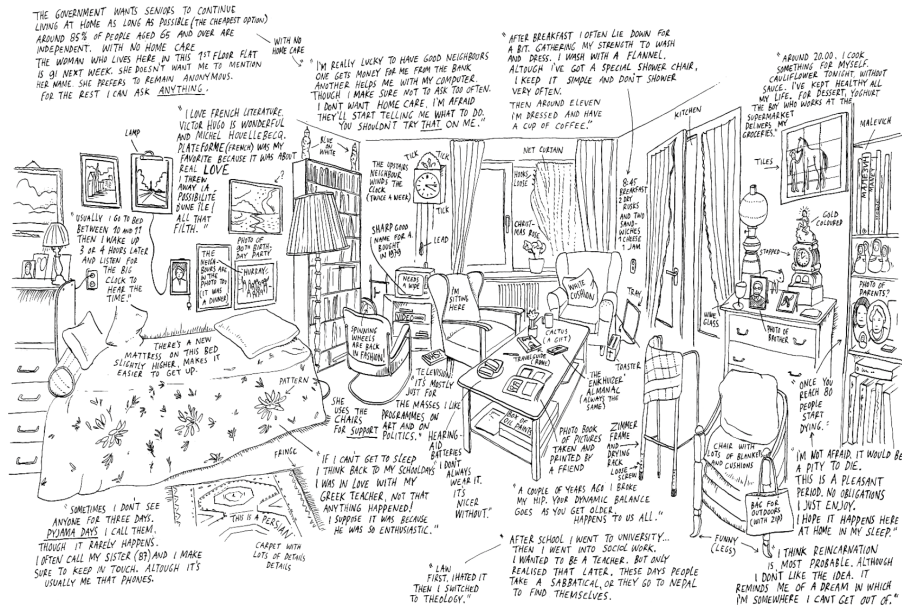 THE GOVERNMENT WANTS SENIORS TO CONTINUE
LIVING AT HOME AS LONG AS POSSIBLE (THE CHEAPEST OPTION)
AROUND 85% OF PEOPLE AGED 65 AND OVER ARE
INDEPENDENT. WITH NO HOME CARE
THE WOMAN WHO LIVES HERE IN THIS 1ST FLOOR FLAT
IS 91 NEXT WEEK. SHE DOESN'T WANT ME TO MENTION
HER NAME. SHE PREFERS TO REMAIN ANONYMOUS.
FOR THE REST I CAN ASK ANYTHING.
WITH NO
HOME CARE
"I'M REALLY LUCKY TO HAVE GOOD NEIGHBOURS
ONE GETS MONEY FOR ME FROM THE BANK
ANOTHER HELPS ME WITH MY COMPUTER.
THOUGH I MAKE SURE NOT TO ASK TOO OFTEN.
I DON'T WANT HOME CARE. I'M AFRAID
THEY'LL START TELLING ME WHAT TO DO.
YOU SHOULDN'T TRY THAT ON ME."
"AFTER BREAKFAST I OFTEN LIE DOWN FOR
A BIT. GATHERING MY STRENGTH TO WASH
AND DRESS. I WASH WITH A FLANNEL.
ALTHOUGH I'VE GOT A SPECIAL SHOWER CHAIR,
I KEEP IT SIMPLE AND DON'T SHOWER
VERY OFTEN.
THEN AROUND ELEVEN
I'M DRESSED AND HAVE
A CUP OF COFFEE."
"AROUND 20.00. I COOK
SOMETHING FOR MYSELF.
CAULIFLOWER TONIGHT, WITHOUT
SAUCE. I'VE KEPT HEALTHY ALL
MY LIFE. FOR DESSERT, YOGHURT
THE BOY WHO WORKS AT THE
SUPERMARKET
DELIVERS MY
GROCERIES."
KITCHEN
MALEVICH
MANET
TILES
LAMP
I LOVE FRENCH LITERATURE.
VICTOR HUGO IS WONDERFUL
AND MICHEL HOUELLEBECQ.
PLATEFORME (FRENCH) WAS MY
FAVORITE BECAUSE IT WAS ABOUT
REAL LOVE
I THREW
AWAY LA
POSSIBILITÉ
D'UNE ÎLE!
ALL THAT
FILTH."
BLUE
ON
WHITE
?
THE UPSTAIRS
NEIGHBOUR
WINDS THE
CLOCK
(TWICE A WEEK)
TICK
TICK
TICK
NET CURTAIN
HOOKS
LOOSE
CHRIST-
MAS ROSE
LEAD
8:45
BREAKFAST
2 DRY
RUSKS
AND TWO
SAND-
WICHES
1 CHEESE
1 JAM
GOLD
COLOURED
STOPPED
"USUALLY I GO TO BED
BETWEEN 10 AND 11
THEN I WAKE UP
3 OR 4 HOURS LATER
AND LISTEN FOR
THE BIG
CLOCK TO
HEAR THE
TIME."
THE
NEIGH-
BOURS ARE
IN THE
PHOTO TOO
(IT WAS
A DINNER)
PHOTO OF
90TH BIRTH-
DAY PARTY
HURRAY!
SHARP GOOD
(NAME FOR A..
BOUGHT
IN 1979
NEEDS
A WIPE
VIDEO
I'M
SITTING
HERE
WHITE
CUSHION
TRAY
WINE
GLASS
PHOTO OF
BROTHER
PHOTO OF
PARENTS?
THERE'S A NEW
MATTRESS ON THIS BED
SLIGHTLY HIGHER, MAKES IT
EASIER TO GET UP.
PATTERN
SPINNING
WHEELS
ARE BACK
IN FASHION!
SHE
USES THE
CHAIRS
FOR SUPPORT
TELEVISION
IT'S MOSTLY
JUST FOR
THE MASSES. I LIKE
PROGRAMMES ON
ART AND ON
POLITICS."
HEARING-
AID
BATTERIES
"I DON'T
ALWAYS
WEAR IT.
IT'S
NICER
WITHOUT."
CACTUS
(A GIFT)
TRAVELGUIDE
(ROME)
THE
ENKHUIZER
ALMANAC
(ALWAYS THE
SAME)
BOX OF
OIL PAINTS
PHOTO BOOK
OF PICTURES
TAKEN AND
PRINTED BY
A FRIEND
TOASTER
ZIMMER
FRAME
AND
DRYING
RACK
LOOSE
SCREW
CHAIR WITH
LOTS OF BLANKETS
AND CUSHIONS
BAG FOR
OUTDOORS
(WITH ZIP)
FUNNY
(LEGS)
"ONCE YOU
REACH 80
PEOPLE
START
DYING.
I'M NOT AFRAID. IT WOULD BE
A PITY TO DIE.
THIS IS A PLEASANT
PERIOD. NO OBLIGATIONS
I JUST ENJOY.
I HOPE IT HAPPENS HERE
AT HOME IN MY SLEEP."
FRINGE
"IF I CAN'T GET TO SLEEP
I THINK BACK TO MY SCHOOLDAYS
I WAS IN LOVE WITH MY
GREEK TEACHER, NOT THAT
ANYTHING HAPPENED!
I SUPPOSE IT WAS BECAUSE
HE WAS SO ENTHUSIASTIC."
"A COUPLE OF YEARS AGO I BROKE
MY HIP. YOUR DYNAMIC BALANCE
GOES AS YOU GET OLDER.
HAPPENS TO US ALL."
"SOMETIMES I DON'T SEE
ANYONE FOR THREE DAYS.
PYJAMA DAYS I CALL THEM.
THOUGH IT RARELY HAPPENS.
I OFTEN CALL MY SISTER (87) AND I MAKE
SURE TO KEEP IN TOUCH. ALTHOUGH IT'S
USUALLY ME THAT PHONES.
THIS IS A PERSIAN
CARPET WITH
LOTS OF DETAILS
DETAILS
"LAW
FIRST. I HATED IT
THEN I SWITCHED
TO THEOLOGY."
"AFTER SCHOOL I WENT TO UNIVERSITY...
THEN I WENT INTO SOCIAL WORK.
I WANTED TO BE A TEACHER. BUT ONLY
REALISED THAT LATER. THESE DAYS PEOPLE
TAKE A SABBATICAL, OR THEY GO TO NEPAL
TO FIND THEMSELVES.
"I THINK REINCARNATION
IS MOST PROBABLE. ALTHOUGH
I DON'T LIKE THE IDEA. IT
REMINDS ME OF A DREAM IN WHICH
I'M SOMEWHERE I CANT GET OUT OF."